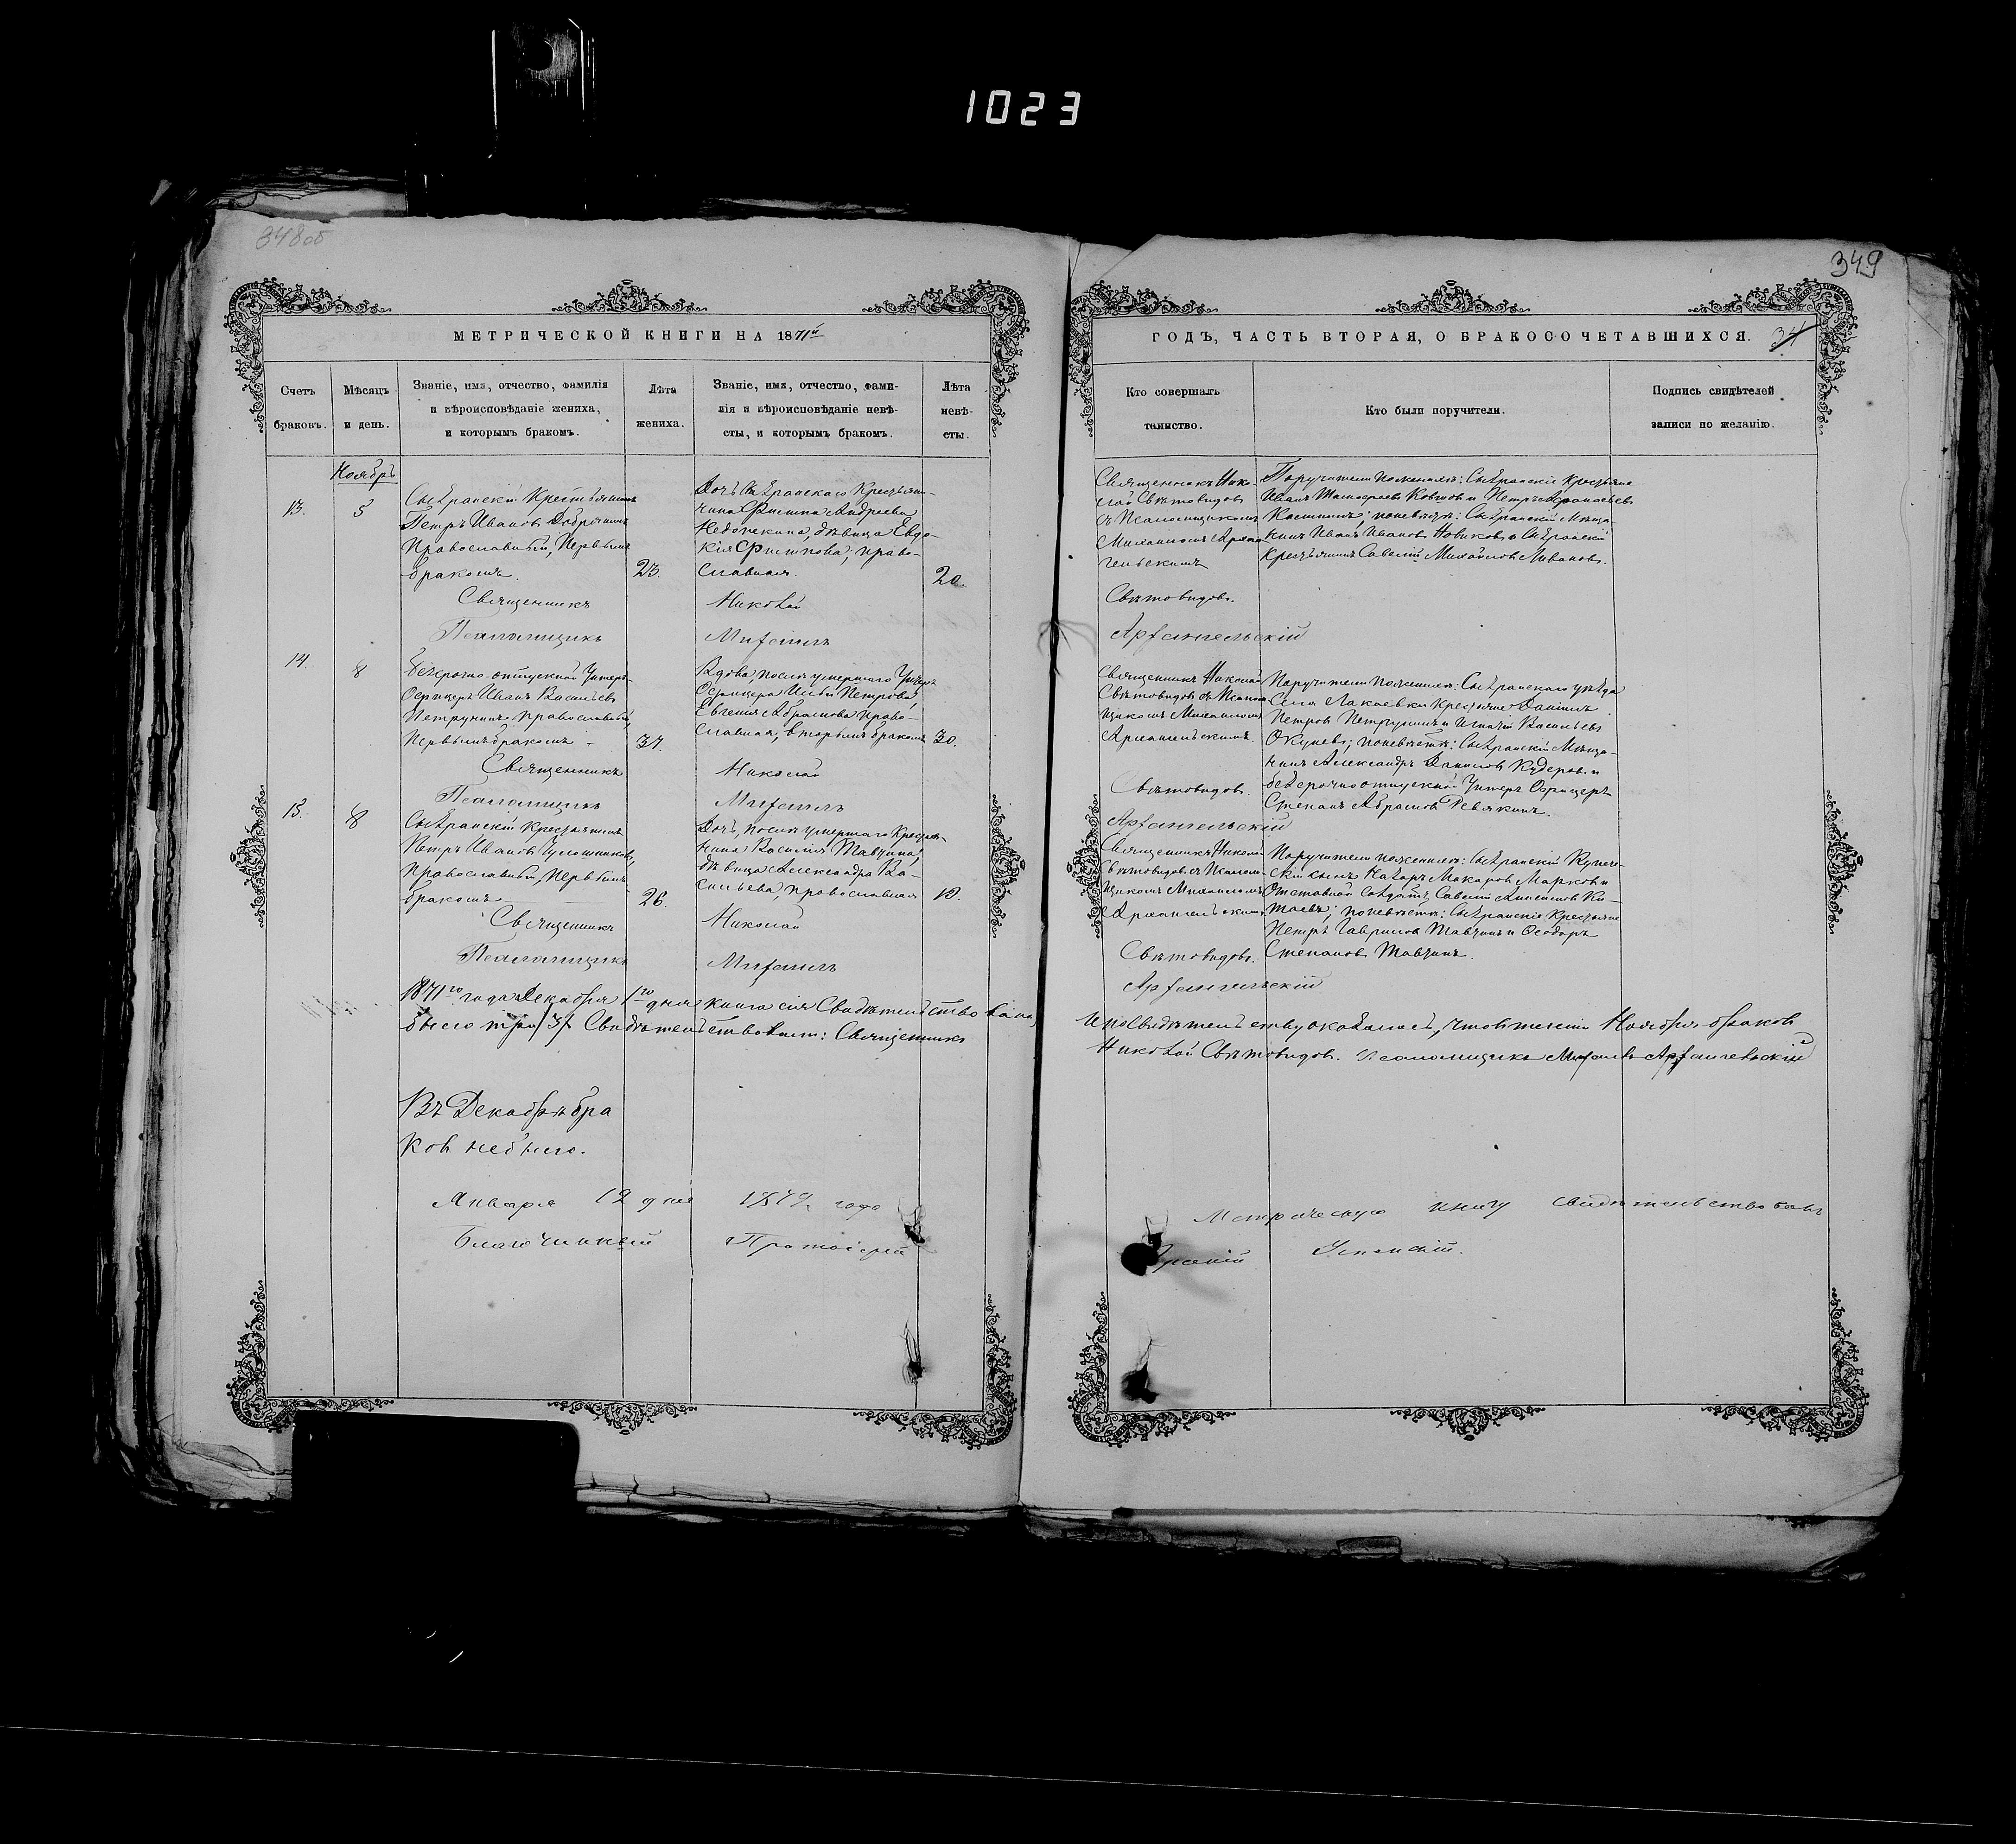 1023
348об
349
МЕТРИЧЕСКОЙ КНИГИ НА 1871й
ГОДЪ, ЧАСТЬ ВТОРАЯ, О БРАКОСОЧЕТАВШИХСЯ.
34
Счетъ
браковъ.
Мѣсяцъ
и день.
Званіе, имя, отчество, фамилія
и вѣроисповѣданіе жениха,
и которымъ бракомъ.
Лѣта
жениха.
Званіе, имя, отчество, фами-
лія и вѣроисповѣданіе невѣ-
сты, и которымъ бракомъ.
Лѣта
невѣ-
сты.
Кто совершалъ
таинство.
Кто были поручители.
Подпись свидѣтелей
записи по желанію.
Ноябрь
13.
5
Сызранскій Крестьянинъ
Петръ Иванов
Православный, Первымъ
бракомъ.
23.
Дочь Сызранскаго Крестьяни-
Филипа Андреева
дѣвица Евдо-
кія Филипова, право-
славная.
20.
Священникъ Нико-
лай Свѣтовидовъ
съ Псаломщикомъ
Михаиломъ Архан-
гельскимъ
Поручители по женихѣ: Сызранскіе крестьяне
Иванъ и Петръ Афанасьевъ
по невѣстѣ: Сызранскій Мѣща-
нинъ Иванъ Ивановъ Новиковъ и Сызранскій
Крестьянинъ Савелій Михайловъ Ливановъ.
Священникъ Николай Свѣтовидовъ.
Псаломщикъ Михаилъ Архангельскій
14.
8
Безсрочно-отпускной Унтеръ-
Офицеръ Иванъ Васильевъ
Петрунинъ, православный,
Первымъ бракомъ
37.
Вдова, послѣ умершаго Унтеръ
Офицера Петрова,
Евгенія Абрамова право-
славная, вторымъ бракомъ
30.
Священникъ Николай
Свѣтовидовъ съ Псалом-
щикомъ Михаиломъ
Архангельскимъ.
Поручители по женихѣ: Сызранскаго уѣзда
Села Крестьяне Даніилъ
Петровъ Петрунинъ и Игнатій Васильевъ
Окуневъ; по невѣстѣ: Сызранскій Мѣща-
нинъ Александръ Даниловъ Кудеровъ и
безсрочноотпускной Унтеръ Офицеръ
Степанъ Абрамовъ Ревякинъ.
Священникъ Николай Свѣтовидовъ.
Псаломщикъ Михаилъ Архангельскій
15.
8
Сызранскій крестьянинъ
Петръ Ивановъ
Православный, Первымъ
бракомъ
26.
Дочь, послѣ умершаго Крестья-
нина Василія Тавзина,
дѣвица Александра Ва-
сильева, православная
19.
Священникъ Николай
Свѣтовидовъ съ Псалом-
щикомъ Михаиломъ
Архангельскимъ.
Поручители по женихѣ: Сызранскій Купече-
скій сынъ Макаровъ Марковъ и
Отставной Солдатъ Савелій Ки-
таевъ; по невѣстѣ: Сызранскіе Крестьяне
Петръ Гавриловъ Тавзинъ и Ѳеодоръ
Степановъ Тавзинъ.
Священникъ Николай Свѣтовидовъ.
Псаломщикъ Михаилъ Архангельскій
1871го года Декабря 1го дня книга сія Свидѣтельствована, и по Свидѣтельству оказалось, что въ теченіи Ноября браковъ
было три /3/ Свидѣтельствовали: Священникъ Николай Свѣтовидовъ. Псаломщикъ Михаилъ Архангельскій
Въ Декабрѣ бра
ковъ небыло.
Января 12 дня 1872 года Метрическую книгу свидѣтельствовалъ
Благочинный Протоіерей Успенскій.